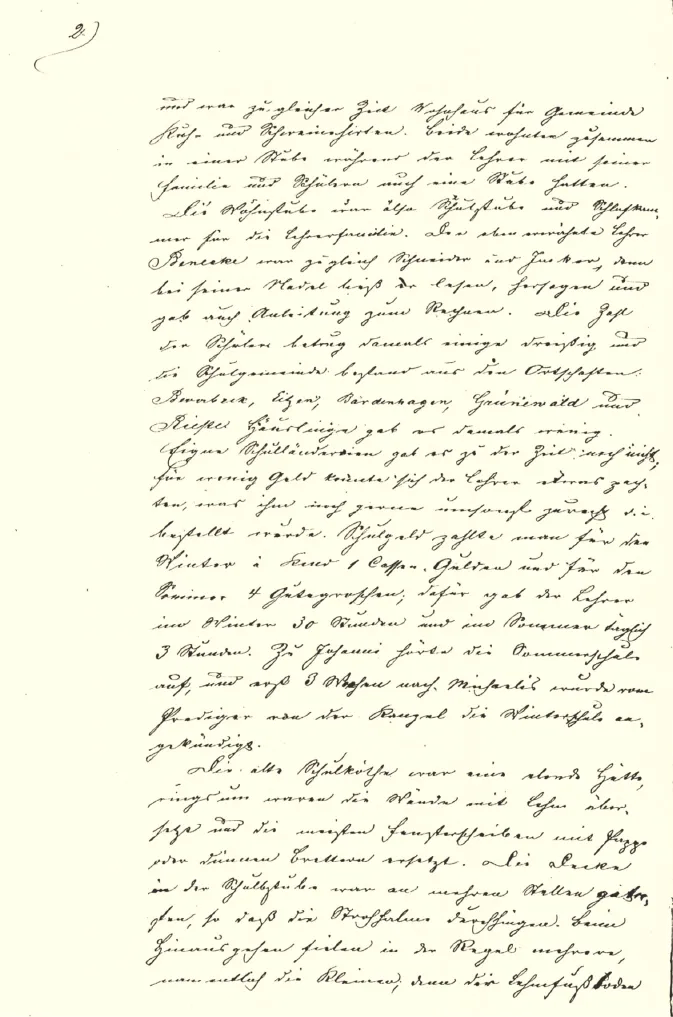 2.)
und war zu gleicher Zeit Wohnhaus für Gemeinde
Kuh- und Schweinehirten. Beide wohnten zusammen
in einer Stube während der Lehrer mit seiner
Familie und Schülern auch eine Stube hatten.
Die Wohnstube war also Schulstube und Schlafkam-
mer für die Lehrerfamilie. Der eben erwähnte Lehrer
Benecke war zugleich Schneider und Imker, denn
bei seiner Nadel ließ er lesen, hersagen und
gab auch Anleitung zum Rechnen. Die Zahl
der Schüler betrug damals einige dreißig und
die Schulgemeinde bestand aus den Ortschaften:
Barnbeck, Eitzen, Bardenhagen, Grünewald und
Rieste Häuslinge gab es damals wenig.
Eigne Schulländereien gab es zu der Zeit noch nicht;
für wenig Geld konnte sich der Lehrer etwas pach-
ten, was ihm noch gerne umsonst zurecht
bestellt wurde. Schulgeld zahlte man für den
Winter à Kind 1 Cassen-Gulden und für den
Sommer 4 Gutegroschen; dafür gab der Lehrer
im Winter 30 Stunden und im Sommer täglich
3 Stunden. Zu Johanni hörte die Sommerschule
auf, und erst 3 Wochen nach Michaelis wurde vom
Prediger von der Kanzel die Winterschule an-
gekündigt.
Die alte Schulköthe war eine elende Hütte,
ringsum waren die Wände mit Lehm über-
setzt und die meisten Fensterscheiben mit Pappe
oder dünnen Brettern ersetzt. Die Decke
in der Schulstube war an mehren Stellen gebor-
sten, so daß die Strohhalme durchhingen. Beim
Hinausgehen fielen in der Regel mehrere,
namentlich die Kleinen; denn der Lehmfußboden